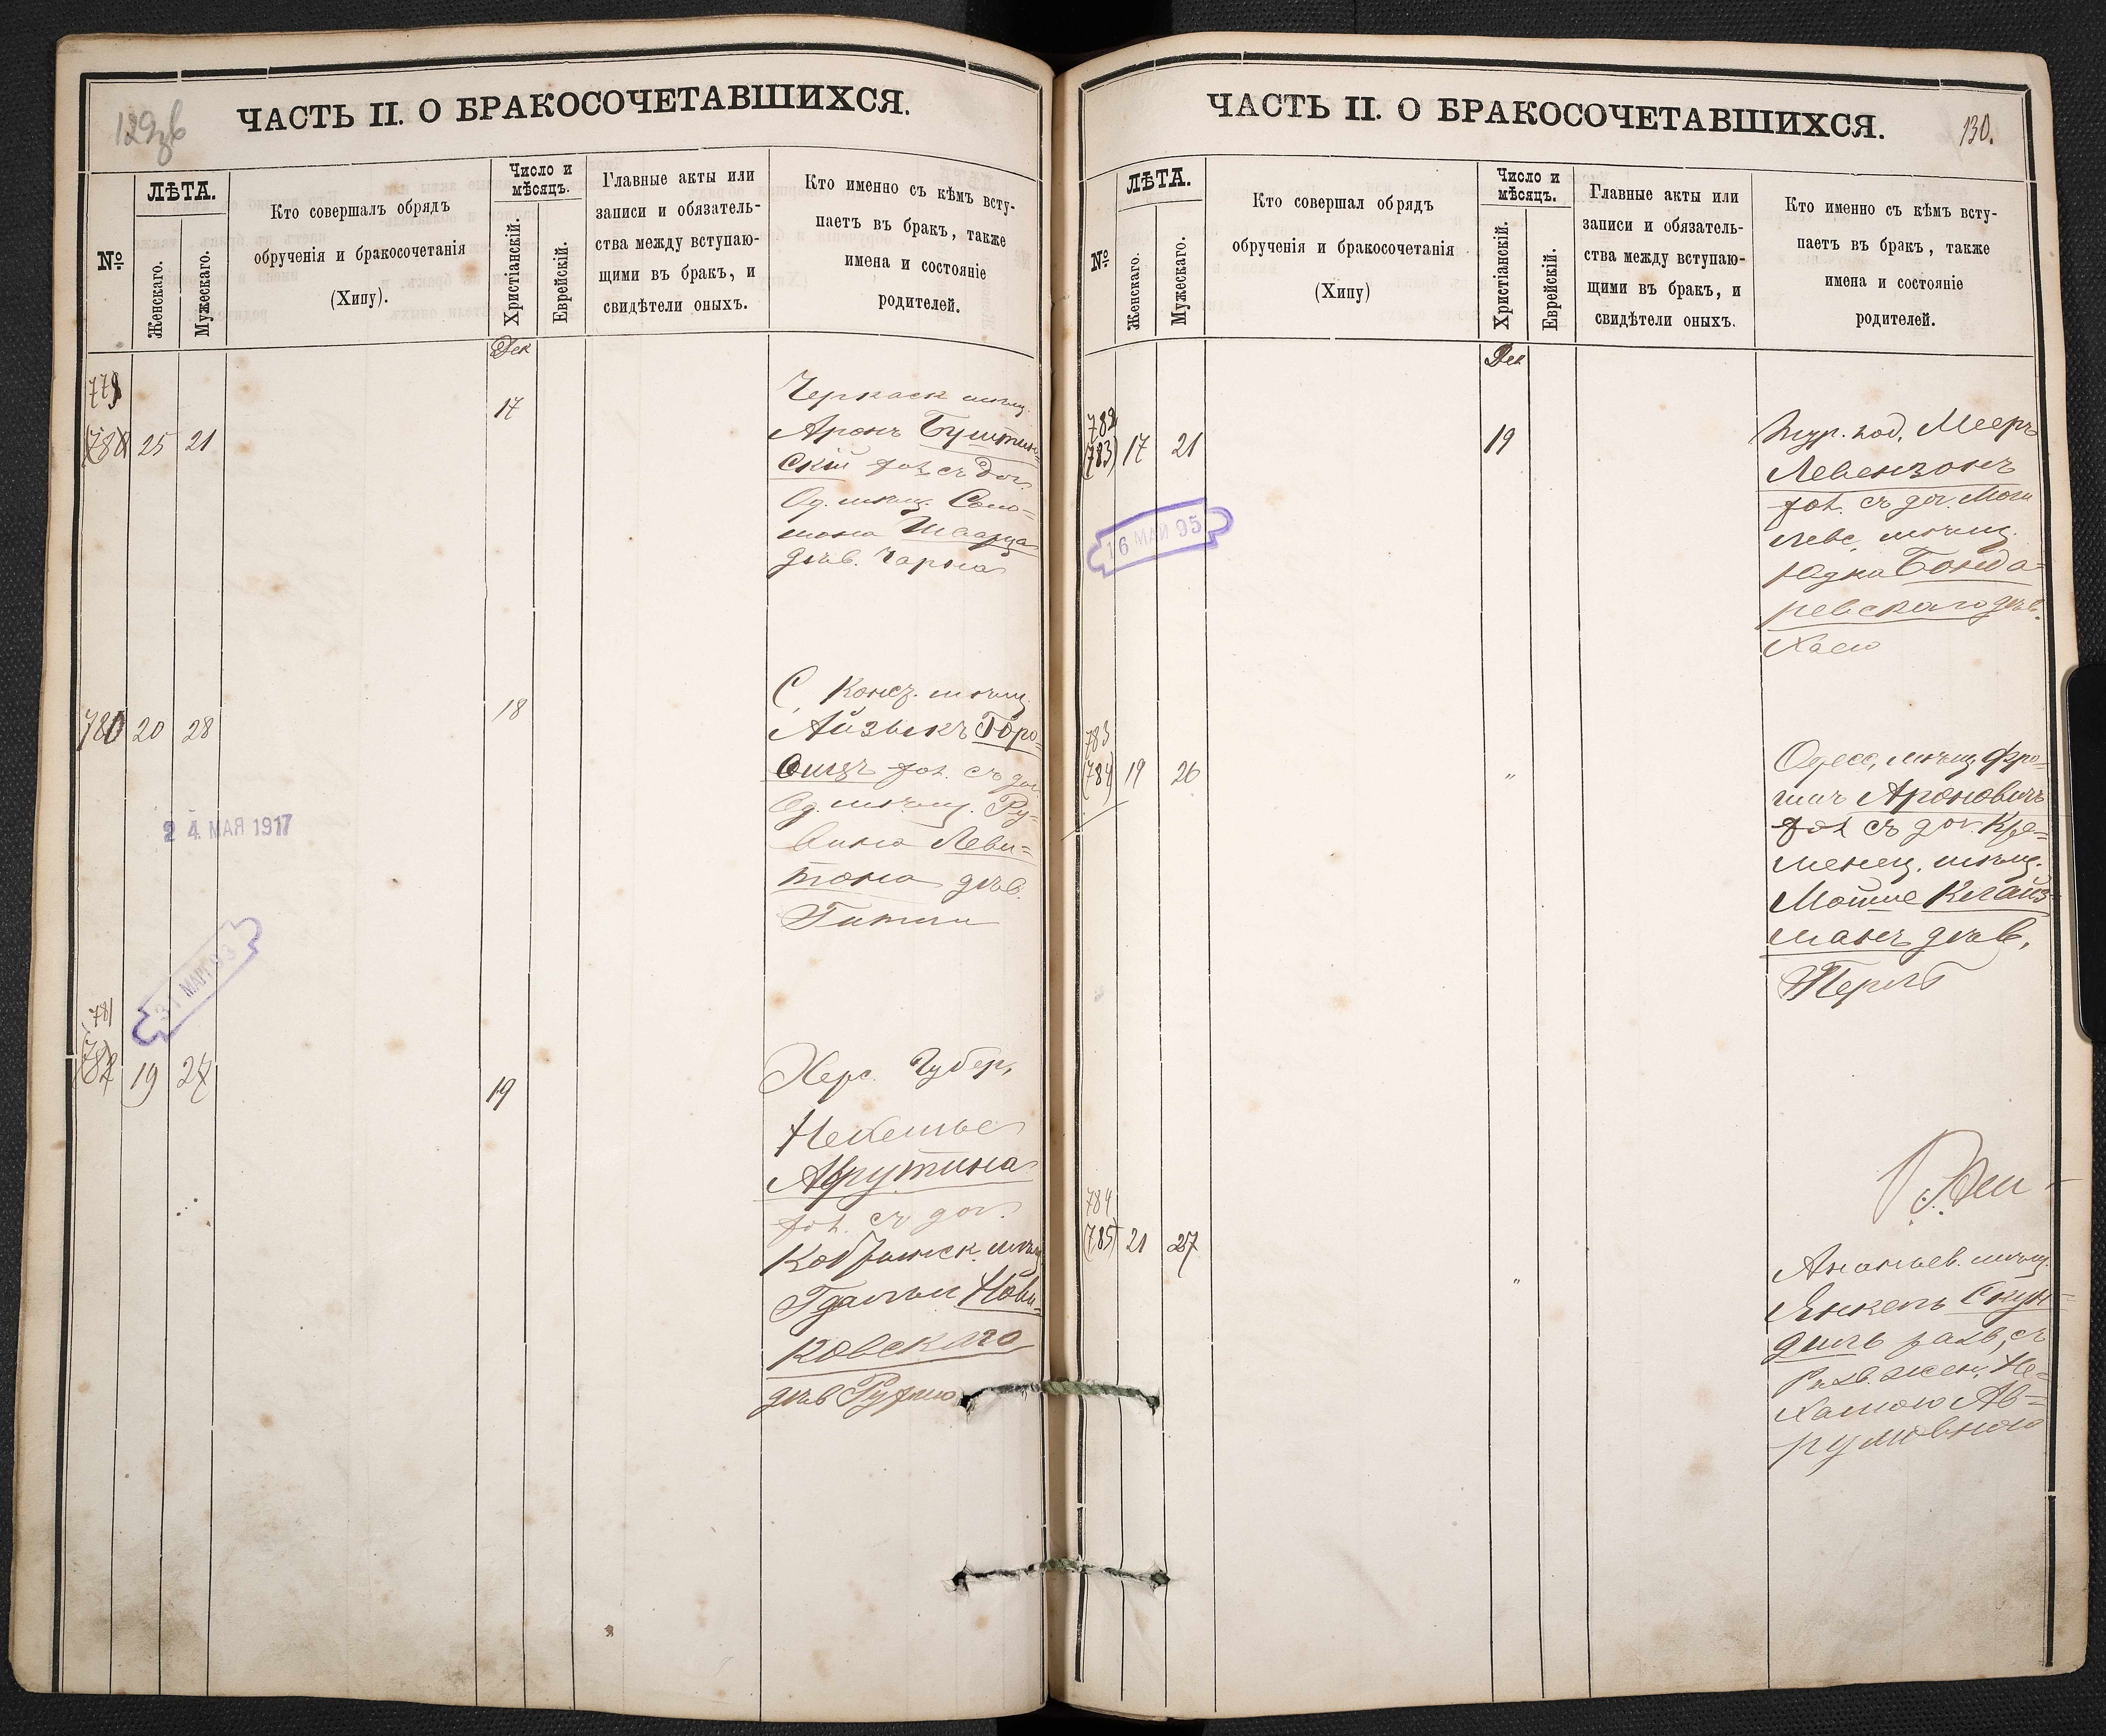 129об
ЧАСТЬ II. О БРАКОСОЧЕТАВШИХСЯ.
№
ЛѢТА.
Женскаго.
Мужескаго.
Кто совершалъ обрядъ
обрученія и бракосочетанія
(Хипу).
Число и
мѣсяцъ.
Христіанскій.
Еврейскій.
Главные акты или
записи и обязатель-
ства между вступаю-
щими въ бракъ, и
свидѣтели оныхъ.
Кто именно съ кѣмъ всту-
паетъ въ бракъ, также
имена и состояніе
родителей.
Дек
779
25 21
17
Черкаск мѣщ.
Аронъ Буштин-
скій хол. съ доч.
Од. мѣщ. Соло-
мона Шварца
дѣв. Чарна
780 20 28
18
С. Конст. мѣщ.
Айзыкъ Горо-
вицъ хол. съ доч.
Од. мѣщ. Ру-
вина Леви-
тона дѣв.
Гитли
24 МАЯ 1917
31 МАРТ 93
781
(782) 19 24
19
Херс. Губер,
Нехемье
Аврутина
хол. съ доч.
Кобринск. мѣщ.
Гдальи Нови-
ковскаго
дѣв
130.
ЧАСТЬ II. О БРАКОСОЧЕТАВШИХСЯ.
№
ЛѢТА.
Женскаго.
Мужескаго.
Кто совершал обрядъ
обрученія и бракосочетанія
(Хипу)
Число и
мѣсяцъ.
Христіанскій.
Еврейскій.
Главные акты или
записи и обязатель-
ства между вступаю-
щими въ бракъ, и
свидѣтели оныхъ.
Кто именно съ кѣмъ всту-
паетъ въ бракъ, также
имена и состояніе
родителей.
Дек
782
(783) 17 21
19
под. Мееръ
Левензонъ
хол. съ доч. Моги
левс. мѣщ.
Юдка Бонда-
ревскаго дѣв.
Хаею
16 МАЙ 95
783
(784) 19 26
"
Одесс, мѣщ Фро-
имъ Ароновичъ
хол съ доч. Кре-
менец. мѣщ.
Мошше Клайз-
манъ дѣв,
Перлѣ
784
(785) 21 27
"
Ананьев. мѣщ.
Янкель Скун-
диль разв, съ
Разв. жен, Не-
хамою Ав-
румовною